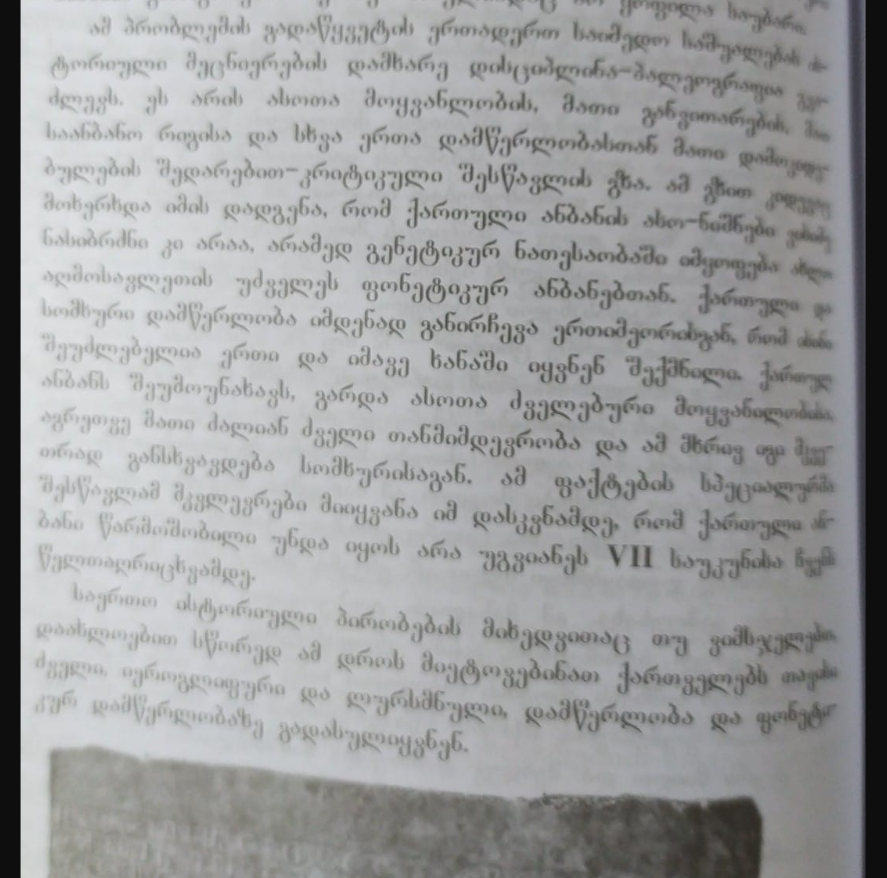 ყოფილა საუბარი.
ამ პრობლემის გადაწყვეტის ერთადერთ საიმედო საშუალებას ის-
ტორიული მეცნიერების დამხმარე დისციპლინა-პალეოგრაფია გვა-
ძლევს. ეს არის ასოთა მოყვანილობის, მათი განვითარების, მათ
საანბანო რიგისა და სხვა ერთა დამწერლობასთან მათი დამოკიდე-
ბულების შედარებით-კრიტიკული შესწავლის გზა. ამ გზით კიდევაც
მოხერხდა იმის დადგენა, რომ ქართული ანბანის ასო-ნიშნები
ნასიბრძნი კი არაა, არამედ გენეტიკურ ნათესაობაში იმყოფება ახლო
აღმოსავლეთის უძველეს ფონეტიკურ ანბანებთან. ქართული და
სომხური დამწერლობა იმდენად განირჩევა ერთიმეორისგან, რომ ისინი
შეუძლებელია ერთი და იმავე ხანაში იყვნენ შექმნილი. ქართულ
ანბანს შეუმოუნახავს, გარდა ასოთა ძველებური მოყვანილობისა,
აგრეთვე მათი ძალიან ძველი თანმიმდევრობა და ამ მხრივ იგი მკვე-
თრად განსხვავდება სომხურისაგან. ამ ფაქტების სპეციალურმა
შესწავლამ მკვლევრები მიიყვანა იმ დასკვნამდე, რომ ქართული ან-
ბანი წარმოშობილი უნდა იყოს არა უგვიანეს VII საუკუნისა ჩვენს
წელთაღრიცხვამდე.
საერთო ისტორიული პირობების მიხედვითაც თუ ვიმსჯელებთ,
დაახლოებით სწორედ ამ დროს მიეტოვებინათ ქართველებს თავისი
ძველი, იეროგლიფური და ლურსმნული, დამწერლობა და ფონეტი-
კურ დამწერლობაზე გადასულიყვნენ.